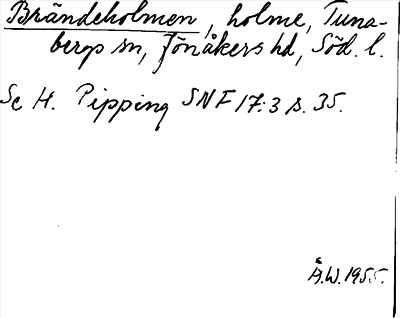 Brändeholmen, holme, Tuna-
bergs sn, Jönåkers hd, Söd. l.
Se H. Pipping SNF 17:3 s. 35.
Å.W. 1955.